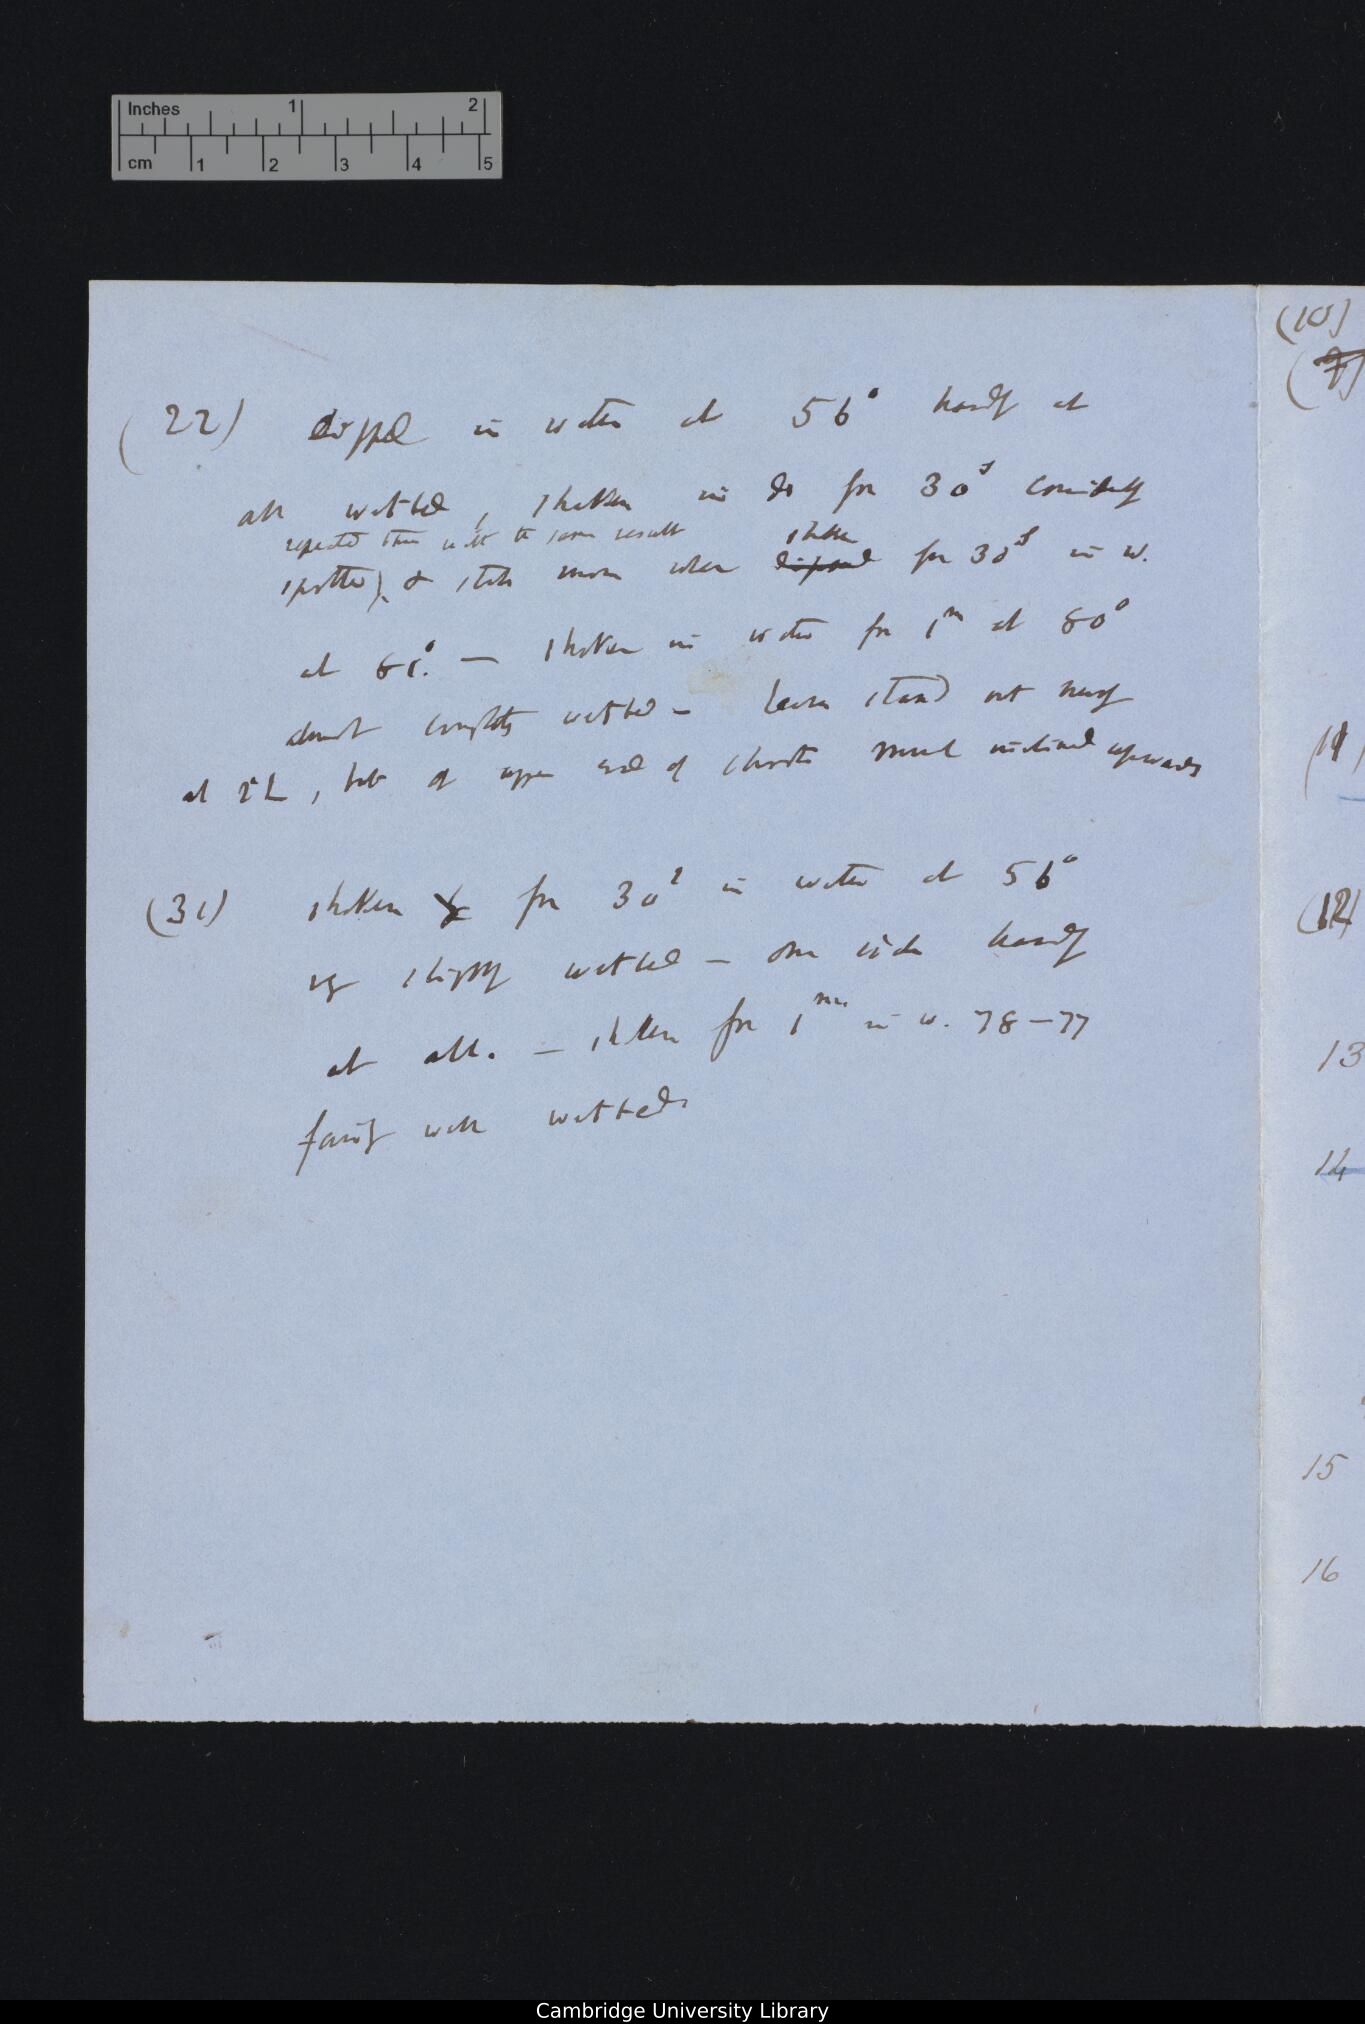 Inches 1 2
cm 1 2 3 4 5
(22) dipped in water at 56° hardly at
all wetted, shaken in do for 30s considerably
repeated this with the same result shaken
spotted, & still more when dipped for 30s in w.
at 61°. — shaken in water for 1m at 80°
almost completely wetted — leaves stand out nearly
at rt L, but at upper end of shoots much inclined upwards
(31) shaken for 30s in water at 56°
very slightly wetted — one side hardly
at all. — shaken for 1m in w. 78—77
fairly well wetted
(10)
(9)
(11)
(12)
13
14
15
16
Cambridge University Library